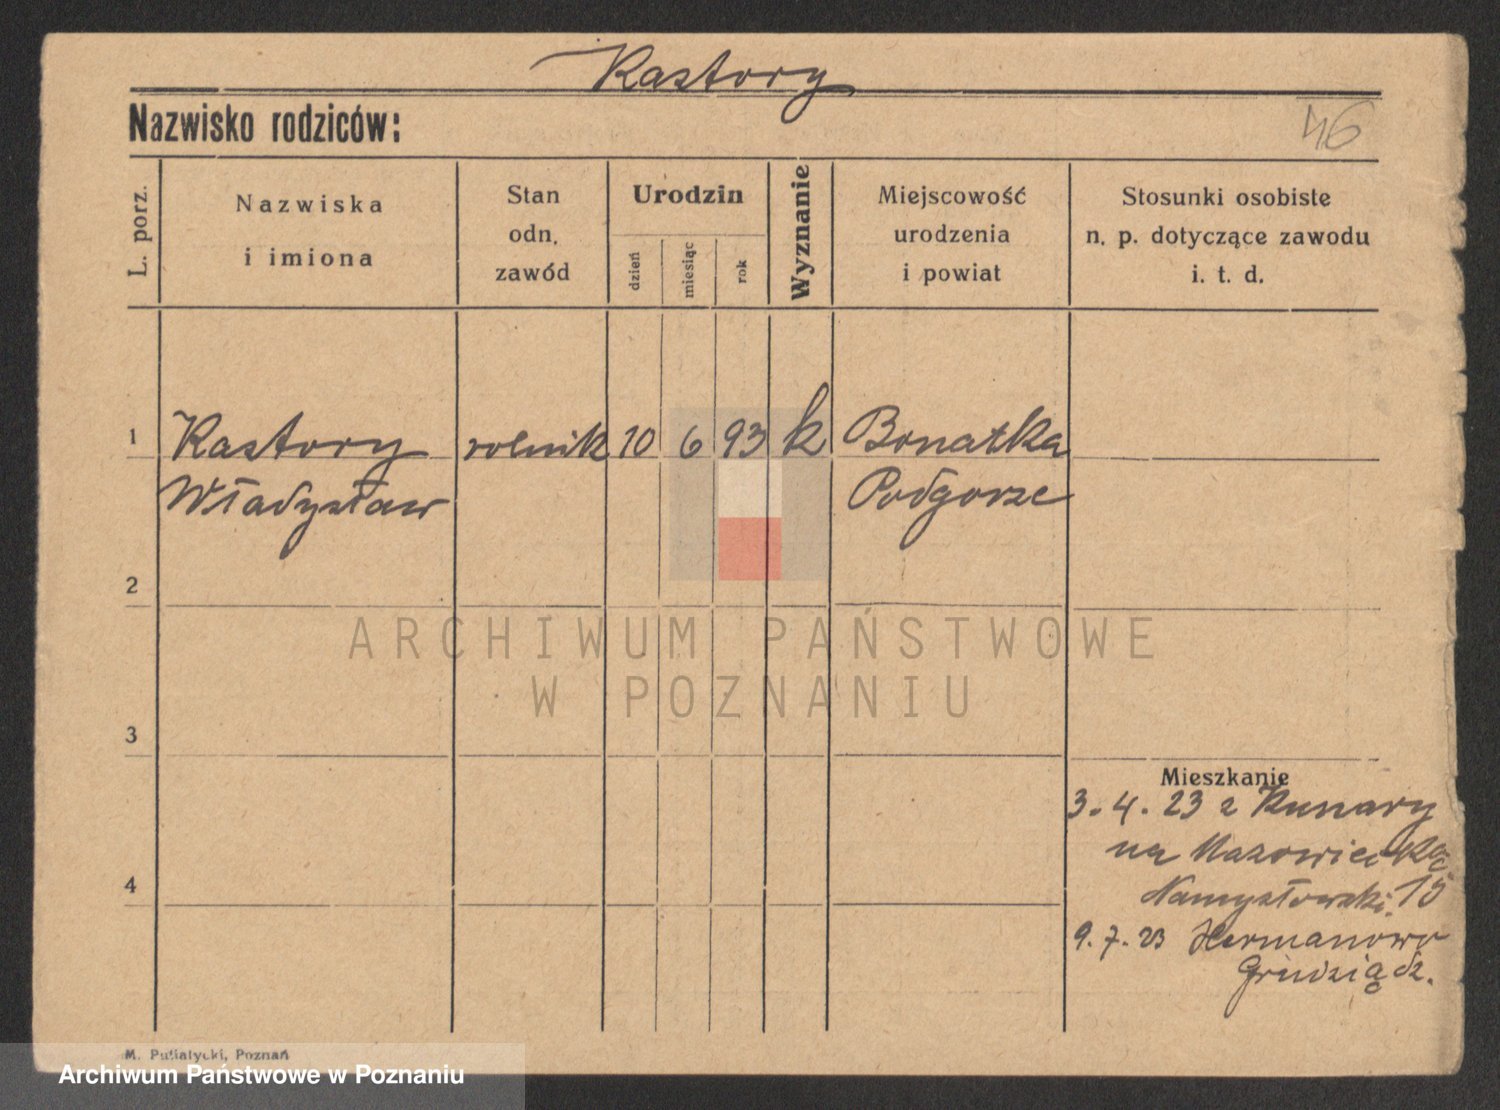 Kastory
Nazwisko rodziców:
46
L. porz.
Nazwiska
i imiona
Stan
odn.
zawód
Urodzin
dzień
miesiąc
rok
Wyznanie
Miejscowość
urodzenia
i powiat
Stosunki osobiste
n. p. dotyczące zawodu
i. t. d.
1
Kastory rolnik 10 6 93 k Bonatka
Władysław Podgorze
2
3
4
Mieszkanie
3.4.23 z Kunary
na Mazowiecką
Namysłowski 15
9.7.23 Hermanowo
Grudziądz.
ARCHIWUM PAŃSTWOWE
W POZNANIU
M. Putiatycki, Poznań
Archiwum Państwowe w Poznaniu